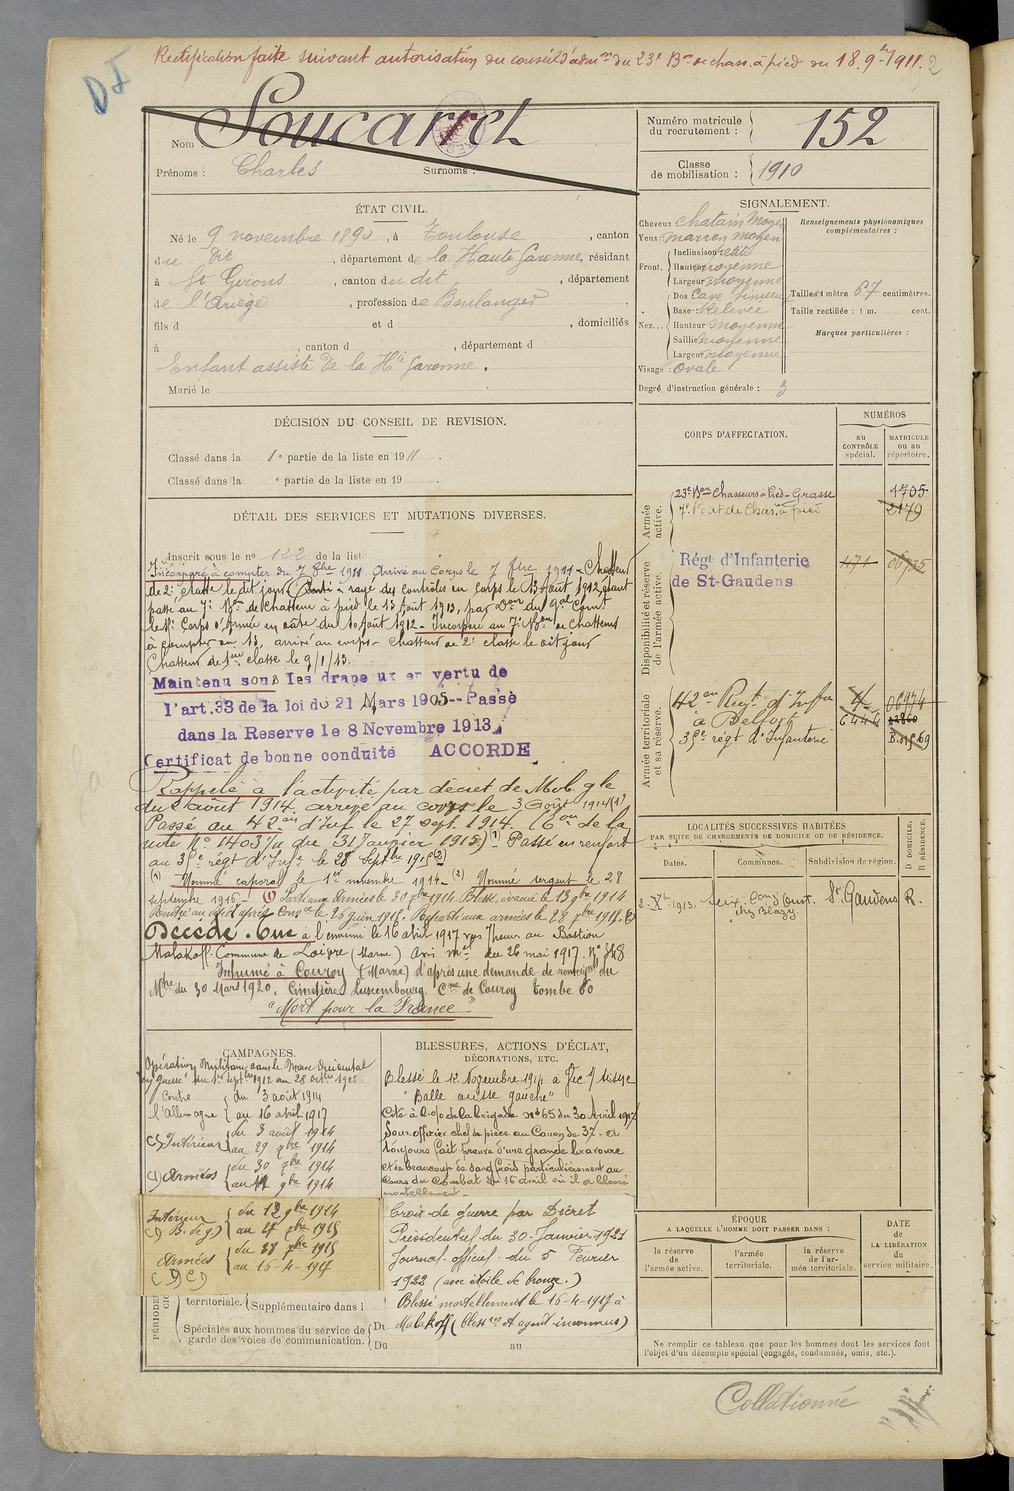 Rectification faite suivant autorisation du conseil d'adm.on du 23e Bon de chass. à pied du 18.9.1911.
2
DI
Nom Soucarret
Prénoms : Charles Surnoms :
Numéro matricule
du recrutement : 152
Classe
de mobilisation : 1910
ÉTAT CIVIL.
Né le 9 novembre 1890, à Toulouse, canton
du dit, département de la Haute Garonne, résidant
à St Girons, canton du dit, département
de l'Ariège, profession de Boulanger
fils d et d , domiciliés
à , canton d , département d
Enfant assisté de la Hte Garonne.
Marié le
SIGNALEMENT.
Cheveux chatain moyen
Yeux marron moyen
Front. Inclinaison petite
Hauteur moyenne
Largeur moyenne
Nez... Dos Cave sinueux
Base : Relevée
Hauteur moyenne
Saillie moyenne
Largeur moyenne
Visage : Ovale
Degré d'instruction générale : 3
Renseignements physionomiques
complémentaires :
Taille : 1 mètre 67 centimètres.
Taille rectifiée : 1 m. cent.
Marques particulières :
DÉCISION DU CONSEIL DE REVISION.
Classé dans la 1e partie de la liste en 1911.
Classé dans la e partie de la liste en 19 .
DÉTAIL DES SERVICES ET MUTATIONS DIVERSES.
Inscrit sous le no 122 de la liste
Incorporé à compter du 7 8bre 1911. Arrivé au Corps le 7 Chasseur
de 2e classe le dit jour rayé des contrôles du corps le 13 Août 1912, étant
passé au 7e Bon de Chasseur à pied le 13 Août 1912, par
Corps d'Armée en date du 10 Août 1912 - Incorporé au 7e Bon de Chasseurs
à compter du 13, arrivé au corps - Chasseur de 2e classe le dit jour
Chasseur de 1ère classe le 9/1/13.
Maintenu sous les drapeaux en vertu de
l'art.33 de la loi du 21 Mars 1905--Passé
dans la Reserve le 8 Novembre 1913
Certificat de bonne conduite ACCORDE
Rappelé à l'activité par décret de Mob. gle
du 2 août 1914 arrivé au corps le 3 Août 1914 (1)
Passé au 42e d'Inf le 27 sept. 1914. de la
note No 14037 du 31 Janvier 1915) (1) Passé en renfort
au 35e régt d'Infie le 28 Septbre 1915 (2)
(1) Nommé caporal le 1er novembre 1914 - (2) Nommé sergent le 28
septembre 1916 - (1) Parti aux Armées le 30 1914. Blessé, évacué le 13 9bre 1914
Rentré au dépôt après le 26 juin 1915. Reparti aux armées le 28 1915.
Décédé. Tué à l'ennemi le 16 avril 1917 vers 7 heures au Bastion
Malakoff. Commune de Loivre (Marne) Avis du 26 mai 1917.
Inhumé à Courcy (Marne) d'après une demande de du
du 30 Mars 1920. Cimetière Luxembourg Cne de Courcy tombe 60
"Mort pour la France"
CORPS D'AFFECTATION.
NUMÉROS
au
CONTRÔLE
spécial.
MATRICULE
ou au
répertoire.
Armée
active.
23e Bon Chasseurs à Pied - Grasse 4705
7e de Chas. à pied 2179
Disponibilité et réserve
de l'armée active.
Régt d'Infanterie
de St-Gaudens
Armée territoriale
et sa réserve.
42e Regt d'Infie
à Belfort
35e régt d'Infanterie
LOCALITÉS SUCCESSIVES HABITÉES
PAR SUITE DE CHANGEMENTS DE DOMICILE OU DE RÉSIDENCE.
Dates. Communes. Subdivision de région.
D DOMICILE.
R RÉSIDENCE.
1913. Seix St Gaudens R.
CAMPAGNES.
Opération Militaire dans le Maroc Occidental
"en guerre" du 1er Septbre 1912 au 28
Contre du 3 août 1914
l'Allemagne au 16 avril 1917
C) Intérieur du 3 août 1914
au 29 1914
(1) Armées du 30 1914
au 9bre 1914
Intérieur du 12 9bre 1914
au 27 1915
Armées du 28 1915
au 16-4-1917
BLESSURES, ACTIONS D'ÉCLAT,
DÉCORATIONS, ETC.
Blessé le 12 Novembre 1914 à Vic s/ Aisne
"Balle cuisse gauche"
Cité à l'o/ de la brigade No 65 du 30 Avril 1917
Sous officier chef de pièce au Canon de 37 - a
toujours fait preuve d'une grande bravoure
et de beaucoup de sang froid particulièrement au
cours du Combat du 16 avril où il a blessé
mortellement -
Croix de guerre par Décret
Présidentiel du 30 Janvier 1921
Journal officiel du 5 Février
1922 (avec étoile de bronze.)
Blessé mortellement le 16-4-1917 à
Malakoff (blessures et agent inconnus)
PÉRIODES
territoriale. Supplémentaire dans l
Spéciales aux hommes du service de
garde des voies de communication. Du
Du au
ÉPOQUE
A LAQUELLE L'HOMME DOIT PASSER DANS :
la réserve
de l'armée active.
l'armée
territoriale.
la réserve
de l'ar-
mée territoriale.
DATE
de
LA LIBÉRATION
du
service militaire.
Ne remplir ce tableau que pour les hommes dont les services font
l'objet d'un décompte spécial (engagés, condamnés, omis, etc.).
Collationné